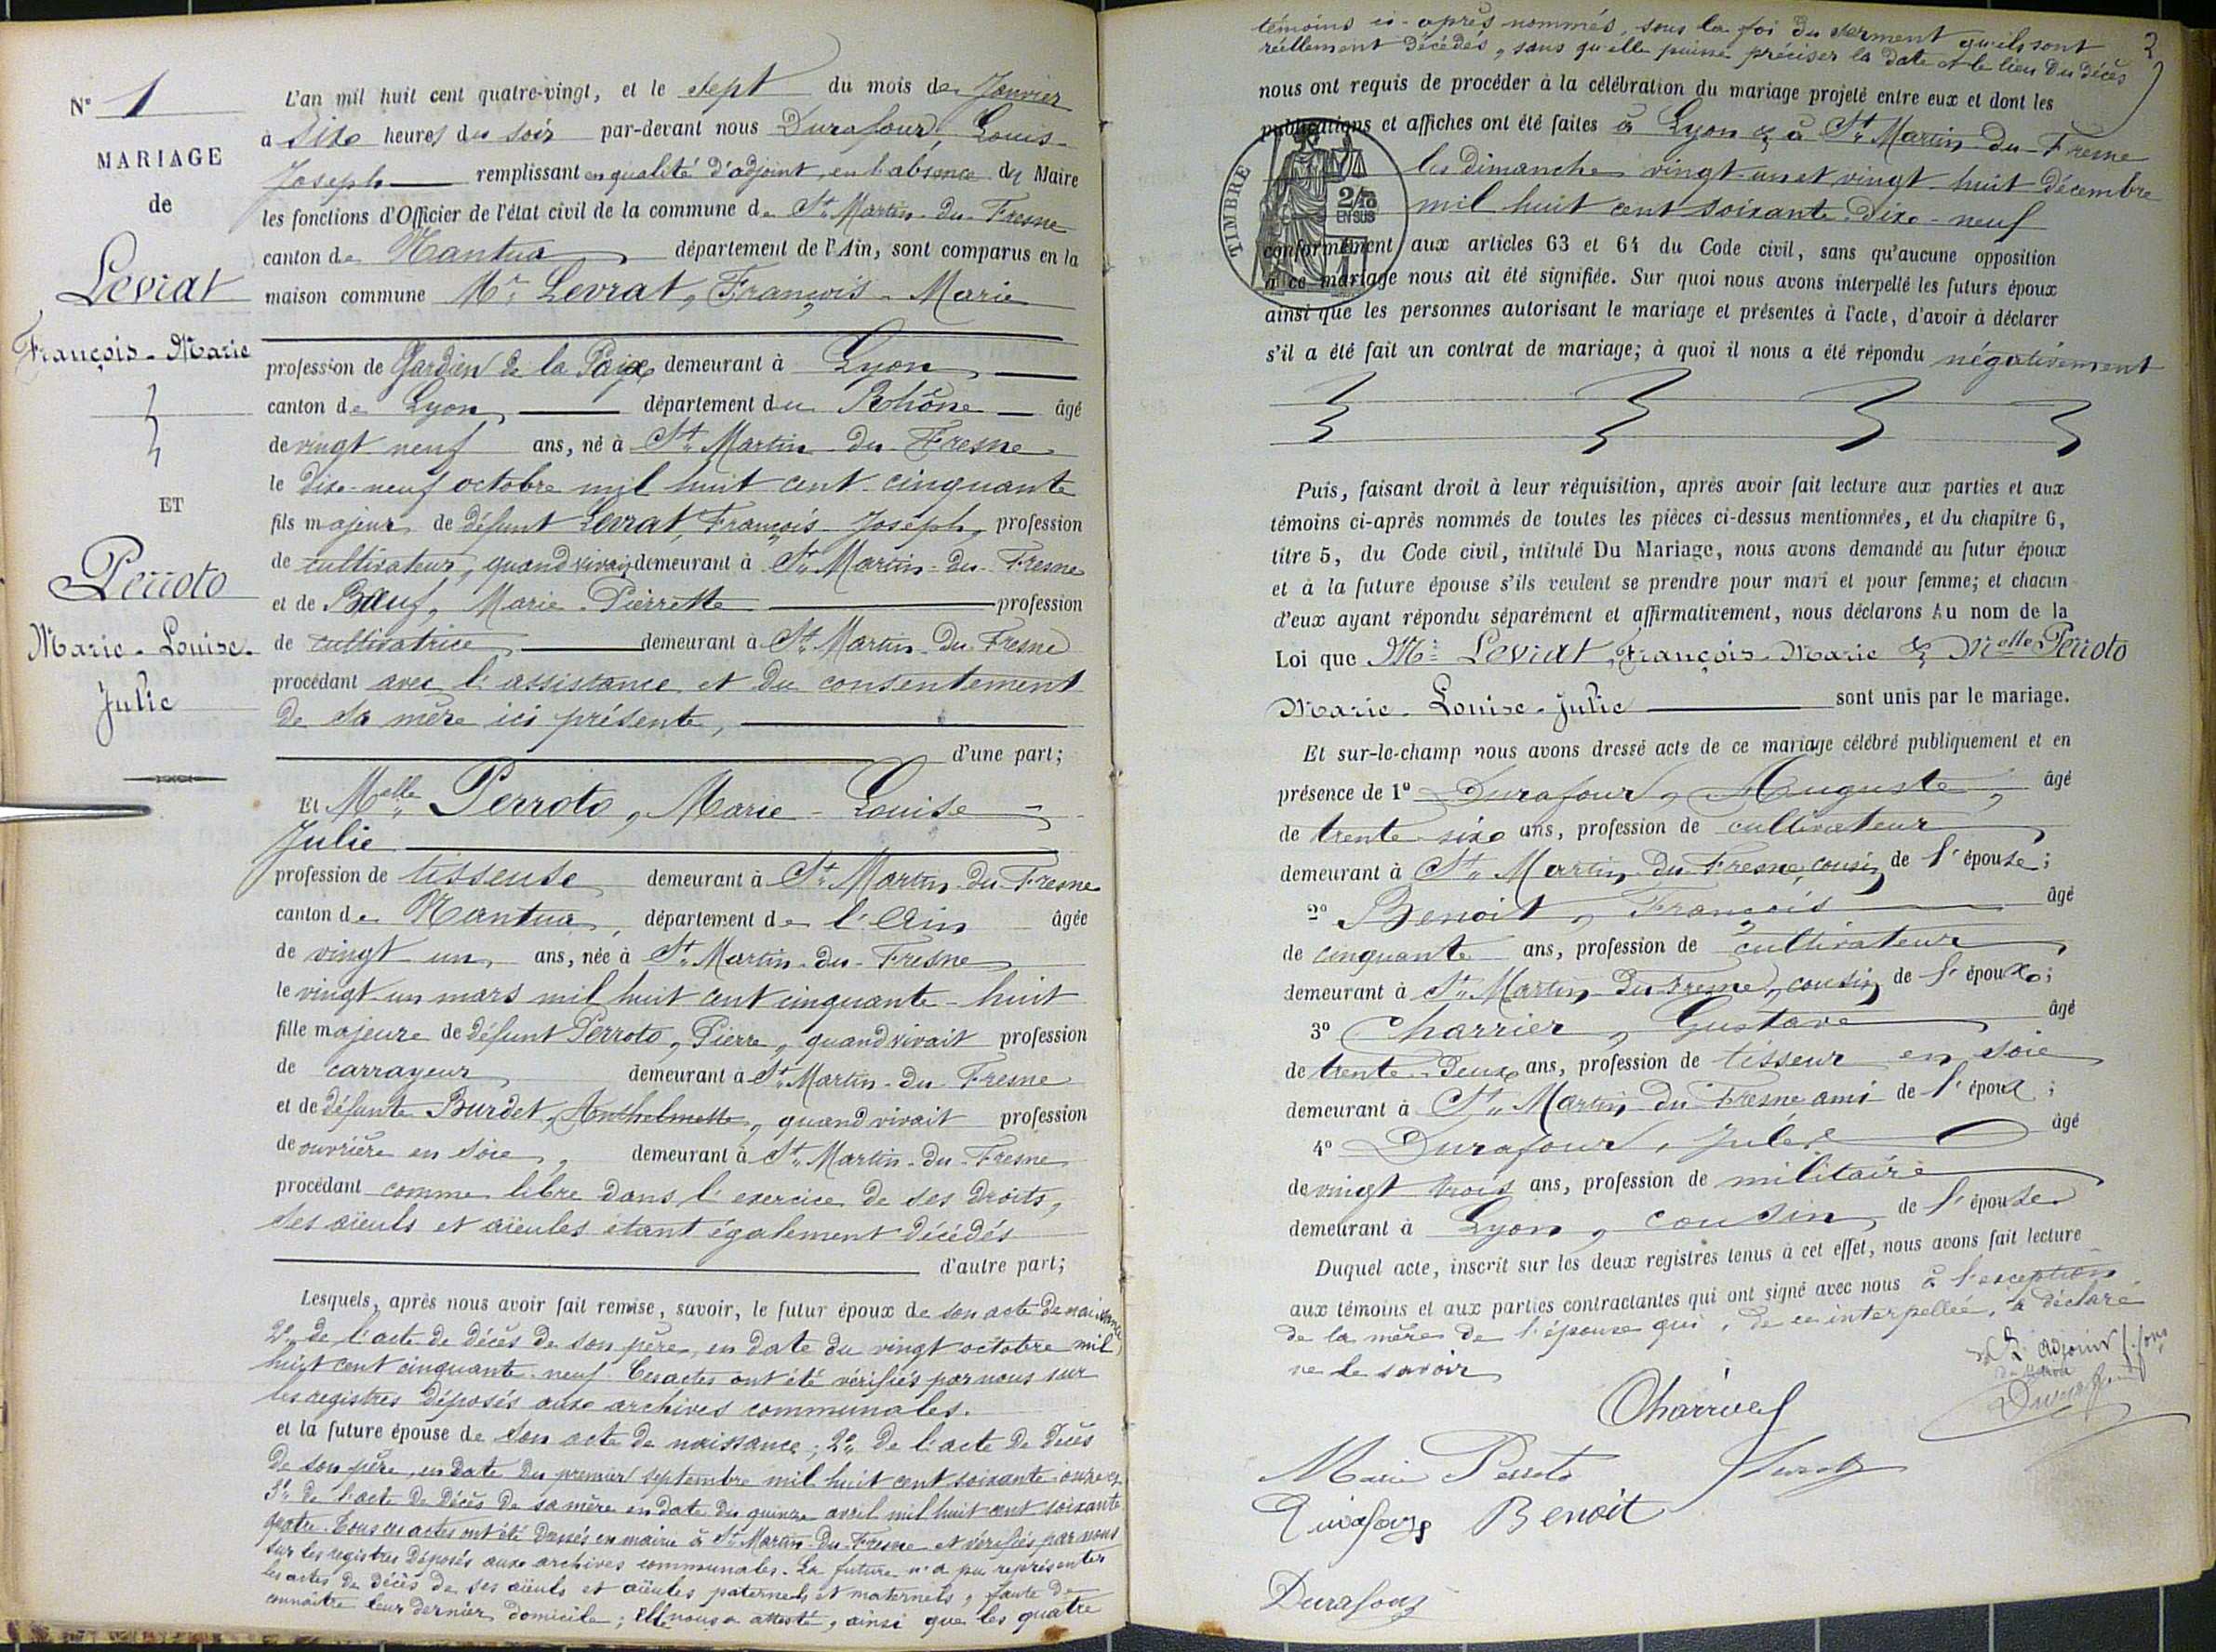 N° 1
MARIAGE
de
Levrat
François-Marie
ET
Perroto
Marie-Louise-
Julie
L'an mil huit cent quatre-vingt, et le sept du mois de Janvier
à Six heures du soir par-devant nous Durafour, Louis-
Joseph remplissant en qualité d'adjoint, en l'absence du Maire
les fonctions d'Officier de l'état civil de la commune de St Martin-du-Fresne
canton de Nantua département de l'Ain, sont comparus en la
maison commune Mr Levrat, François-Marie
profession de Gardien de la Paix demeurant à Lyon
canton de Lyon département du Rhône âgé
de vingt neuf ans, né à St Martin-du-Fresne
le dix-neuf octobre mil huit cent cinquante
fils majeur de défunt Levrat, François-Joseph, profession
de cultivateur, quand vivait demeurant à St Martin-du-Fresne
et de Bœuf, Marie-Pierrette profession
de cultivatrice demeurant à St Martin-du-Fresne
procédant avec l'assistance et du consentement
de sa mère ici présente,
d'une part;
Et Melle Perroto, Marie-Louise-
Julie
profession de tisseuse demeurant à St Martin-du-Fresne
canton de Nantua département de l'Ain âgée
de vingt un ans, née à St Martin-du-Fresne
le vingt-un mars mil huit cent cinquante-huit
fille majeure de défunt Perroto, Pierre, quand vivait profession
de carrayeur demeurant à St Martin-du-Fresne
et de défunte Burdet, Anthelmette, quand vivait profession
de ouvrière en soie, demeurant à St Martin-du-Fresne
procédant comme libre dans l'exercice de ses droits,
ses aïeuls et aïeules étant également décédés
d'autre part;
Lesquels, après nous avoir fait remise, savoir, le futur époux de son acte de naissance
2° de l'acte de décès de son père, en date du vingt octobre mil
huit cent cinquante neuf. Ces actes ont été vérifiés par nous sur
les registres déposés aux archives communales.
et la future épouse de son acte de naissance; 2° de l'acte de décès
de son père, en date du premier septembre mil huit cent soixante-onze et
3° de l'acte de décès de sa mère en date du quinze avril mil huit cent soixante
quatre. Tous ces actes ont été dressés en mairie à St Martin-du-Fresne et vérifiés par nous
sur les registres déposés aux archives communales. La future n'a pu représenter
les actes de décès de ses aïeuls et aïeules paternels et maternels, faute de
connaître leur dernier domicile; Elle nous a attesté, ainsi que les quatre
2
témoins ci-après nommés, sous la foi du serment qu'ils sont
réellement décédés, sans qu'elle puisse préciser la date et le lieu du décès
nous ont requis de procéder à la célébration du mariage projeté entre eux et dont les
publications et affiches ont été faites à Lyon & à St Martin-du-Fresne
les dimanches vingt-un et vingt-huit décembre
mil huit cent soixante-dix-neuf
TIMBRE
2/10
EN SUS
conformément aux articles 63 et 64 du Code civil, sans qu'aucune opposition
à ce mariage nous ait été signifiée. Sur quoi nous avons interpellé les futurs époux
ainsi que les personnes autorisant le mariage et présentes à l'acte, d'avoir à déclarer
s'il a été fait un contrat de mariage; à quoi il nous a été répondu négativement
Puis, faisant droit à leur réquisition, après avoir fait lecture aux parties et aux
témoins ci-après nommés de toutes les pièces ci-dessus mentionnées, et du chapitre 6,
titre 5, du Code civil, intitulé Du Mariage, nous avons demandé au futur époux
et à la future épouse s'ils veulent se prendre pour mari et pour femme; et chacun
d'eux ayant répondu séparément et affirmativement, nous déclarons Au nom de la
Loi que Mr Levrat, François-Marie & Melle Perroto
Marie-Louise-Julie sont unis par le mariage.
Et sur-le-champ nous avons dressé acte de ce mariage célébré publiquement et en
présence de 1° Durafour, Auguste, âgé
de trente-six ans, profession de cultivateur
demeurant à St Martin-du-Fresne, cousin de l'épouse;
2° Benoit, François âgé
de cinquante ans, profession de cultivateur
demeurant à St Martin-du-Fresne, cousin de l'époux;
3° Charrier, Gustave âgé
de trente-deux ans, profession de tisseur en soie
demeurant à St Martin-du-Fresne ami de l'époux;
4° Durafour, Jules âgé
de vingt trois ans, profession de militaire
demeurant à Lyon, cousin de l'épouse
Duquel acte, inscrit sur les deux registres tenus à cet effet, nous avons fait lecture
aux témoins et aux parties contractantes qui ont signé avec nous à l'exception
de la mère de l'épouse qui, de ce interpellée, a déclaré
ne le savoir
L'adjoint
Charrier
Marie Perroto Levrat
Durafour Benoit
Durafour